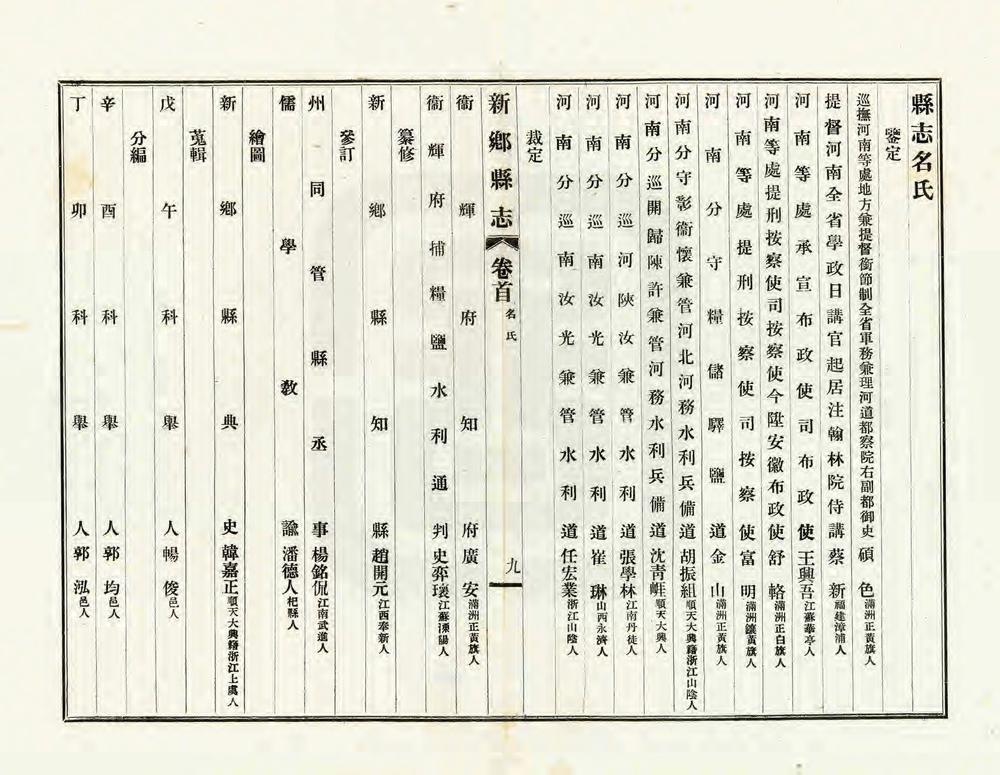 縣志名氏
鑒定
巡撫河南等處地方兼提督銜節制全省軍務兼理河道都察院右副都御史碩色滿洲正黃旗人
提督河南全省學政日講官起居注翰林院侍講蔡新福建漳浦人
河南等處承宣布政使司布政使王興吾江蘇華亭人
河南等處提刑按察使司按察使今陞安徽布政使舒輅滿洲正白旗人
河南等處提刑按察使司按察使富明滿洲鑲黃旗人
河南分守糧儲驛鹽道金山滿洲正黃旗人
河南分守彰衞懷兼管河北河務水利兵備道胡振組順天大興籍浙江山陰人
河南分巡開歸陳許兼管河務水利兵備道沈青崕順天大興人
河南分巡河陝汝兼管水利道張學林江南丹徒人
河南分巡南汝光兼管水利道崔琳山西永濟人
河南分巡南汝光兼管水利道任宏業浙江山陰人
裁定
新鄉縣志 卷首 名氏 九
衞輝府知府廣安滿洲正黃旗人
衞輝府捕糧鹽水利通判史弈瓖江蘇溧陽人
纂修
新鄉縣知縣趙開元江西奉新人
參訂
州同管縣丞事楊銘侃江南武進人
儒學教諭潘德人杞縣人
繪圖
新鄉縣典史韓嘉正順天大興籍浙江上虞人
蒐輯
戊午科舉人暢俊邑人
分編
辛酉科舉人郭均邑人
丁卯科舉人郭泓邑人